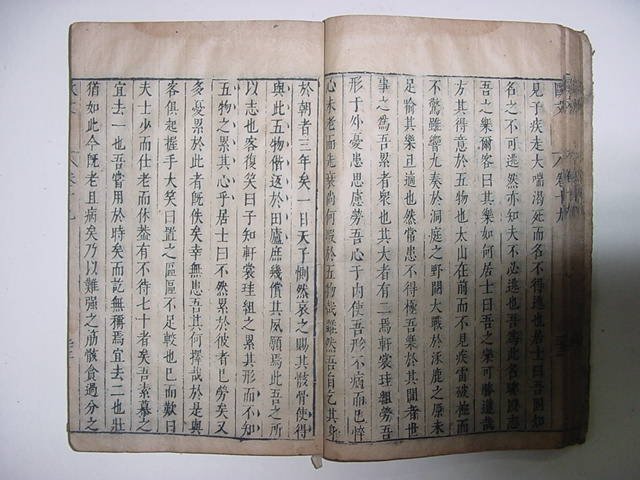 見子疾走大喘渴死而名不得逃也居士曰吾固知
名之不可逃然亦知夫不必逃也吾爲此名聊以志
吾之樂爾客曰其樂如何居士曰吾之樂可勝道哉
方其得意於五物也太山在前而不見疾雷破柱而
不驚雖響九奏於洞庭之野閱大戰於涿鹿之原未
足喻其樂且適也然常患不得極吾樂於其間者世
事之爲吾累者眾也其大者有二焉軒裳珪組勞吾
形于外憂患思慮勞吾心于內使吾形不病而已悴
心未老而先衰尚何暇於五物哉雖然吾自乞其身
於朝者三年矣一日天子惻然哀之賜其骸骨使得
與此五物偕返於田廬庶幾償其夙願焉此吾之所
以志也客復笑曰子知軒裳珪組之累其形而不知
五物之累其心乎居士曰不然累於彼者已勞矣又
多憂累於此者旣佚矣幸無患吾其何擇哉於是與
客俱起握手大笑曰置之區區不足較也已而歎曰
夫士少而仕老而休葢有不待七十者矣吾素慕之
宜去一也吾嘗用於時矣而訖無稱焉宜去二也壯
猶如此今旣老且病矣乃以難强之筋骸貪過分之